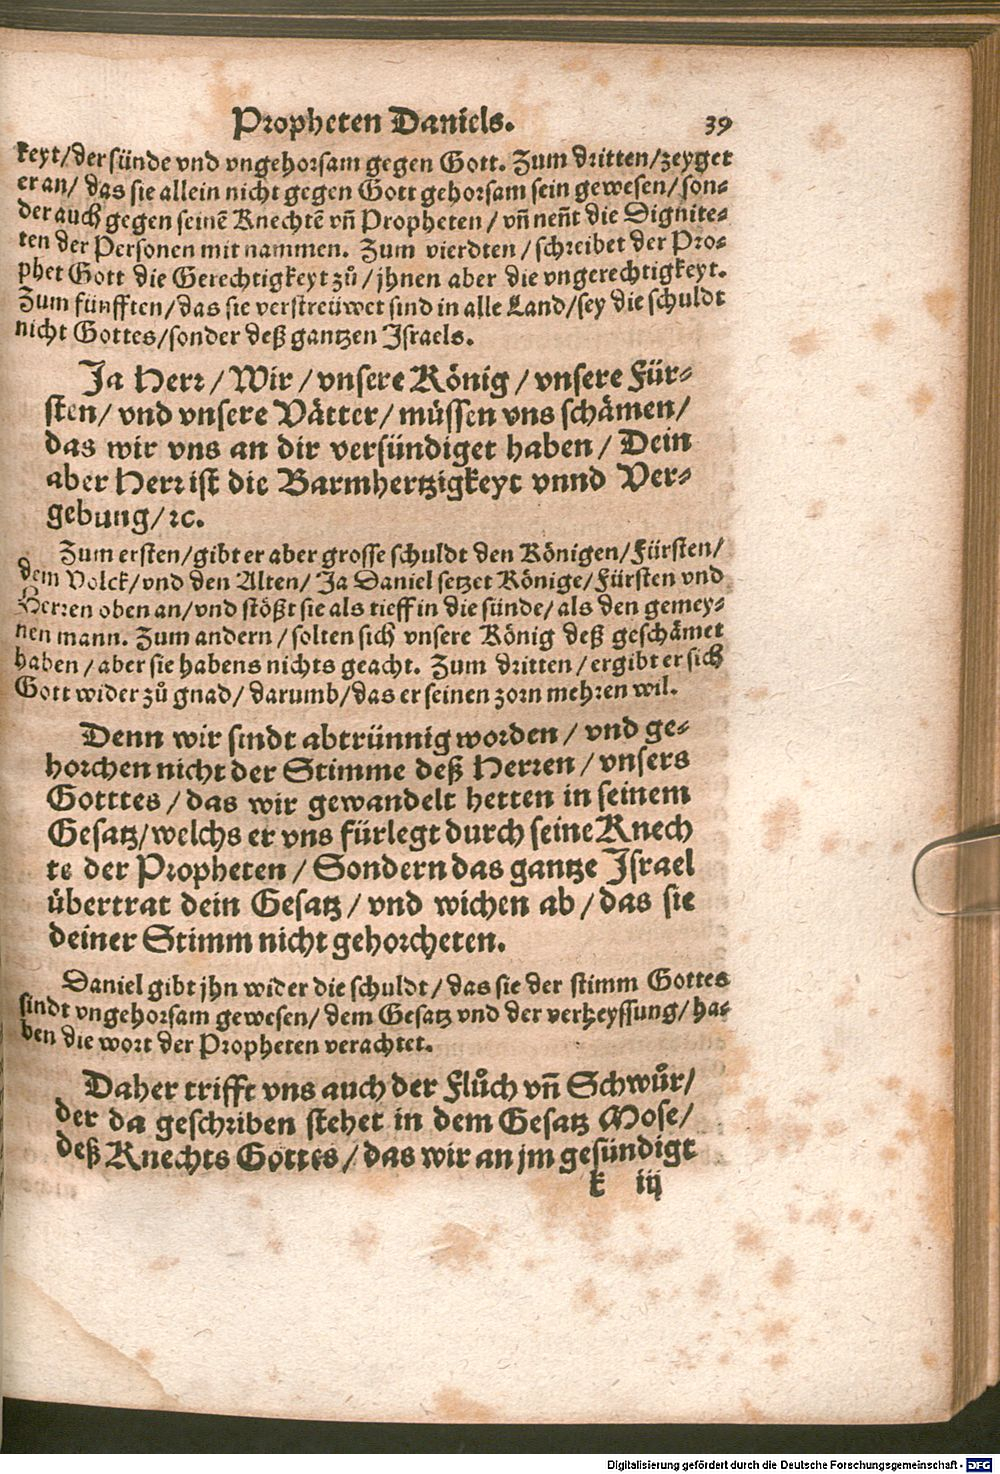 Propheten Daniels. 39
keyt/der sünde vnd vngehorsam gegen Gott. Zum dritten/zeyget
er an/ das sie allein nicht gegen Gott gehorsam sein gewesen/son-
der auch gegen seinē Knechtē vn̄ Propheten/vn̄ nen̄t die Dignite-
ten der Personen mit nammen. Zum vierdten/schreibet der Pro-
phet Gott die Gerechtigkeyt zů/jhnen aber die vngerechtigkeyt.
Zum fünfften/das sie verstreüwet sind in alle Land/sey die schuldt
nicht Gottes/sonder deß gantzen Israels.
Ja Herr/Wir/vnsere König/vnsere Für-
sten/vnd vnsere Vätter/müssen vns schämen/
das wir vns an dir versündiget haben/Dein
aber Herr ist die Barmhertzigkeyt vnnd Ver-
gebung/ꝛc.
Zum ersten/gibt er aber grosse schuldt den Königen/Fürsten/
dem Volck/vnd den Alten/Ja Daniel setzet Könige/Fürsten vnd
Herren oben an/vnd stößt sie als tieff in die sünde/als den gemey-
nen mann. Zum andern/solten sich vnsere König deß geschämet
haben/aber sie habens nichts geacht. Zum dritten/ergibt er sich
Gott wider zů gnad/darumb/das er seinen zorn mehren wil.
Denn wir sindt abtrünnig worden/vnd ge-
horchen nicht der Stimme deß Herren/vnsers
Gotttes/das wir gewandelt hetten in seinem
Gesatz/welchs er vns fürlegt durch seine Knech
te der Propheten/Sondern das gantze Israel
übertrat dein Gesatz/vnd wichen ab/das sie
deiner Stimm nicht gehorcheten.
Daniel gibt jhn wider die schuldt/das sie der stimm Gottes
sindt vngehorsam gewesen/dem Gesatz vnd der verheyssung/ha-
ben die wort der Propheten verachtet.
Daher trifft vns auch der Flůch vn̄ Schwůr/
der da geschriben stehet in dem Gesatz Mose/
deß Knechts Gottes/das wir an jm gesündigt
k iij
Digitalisierung gefördert durch die Deutsche Forschungsgemeinschaft - DFG